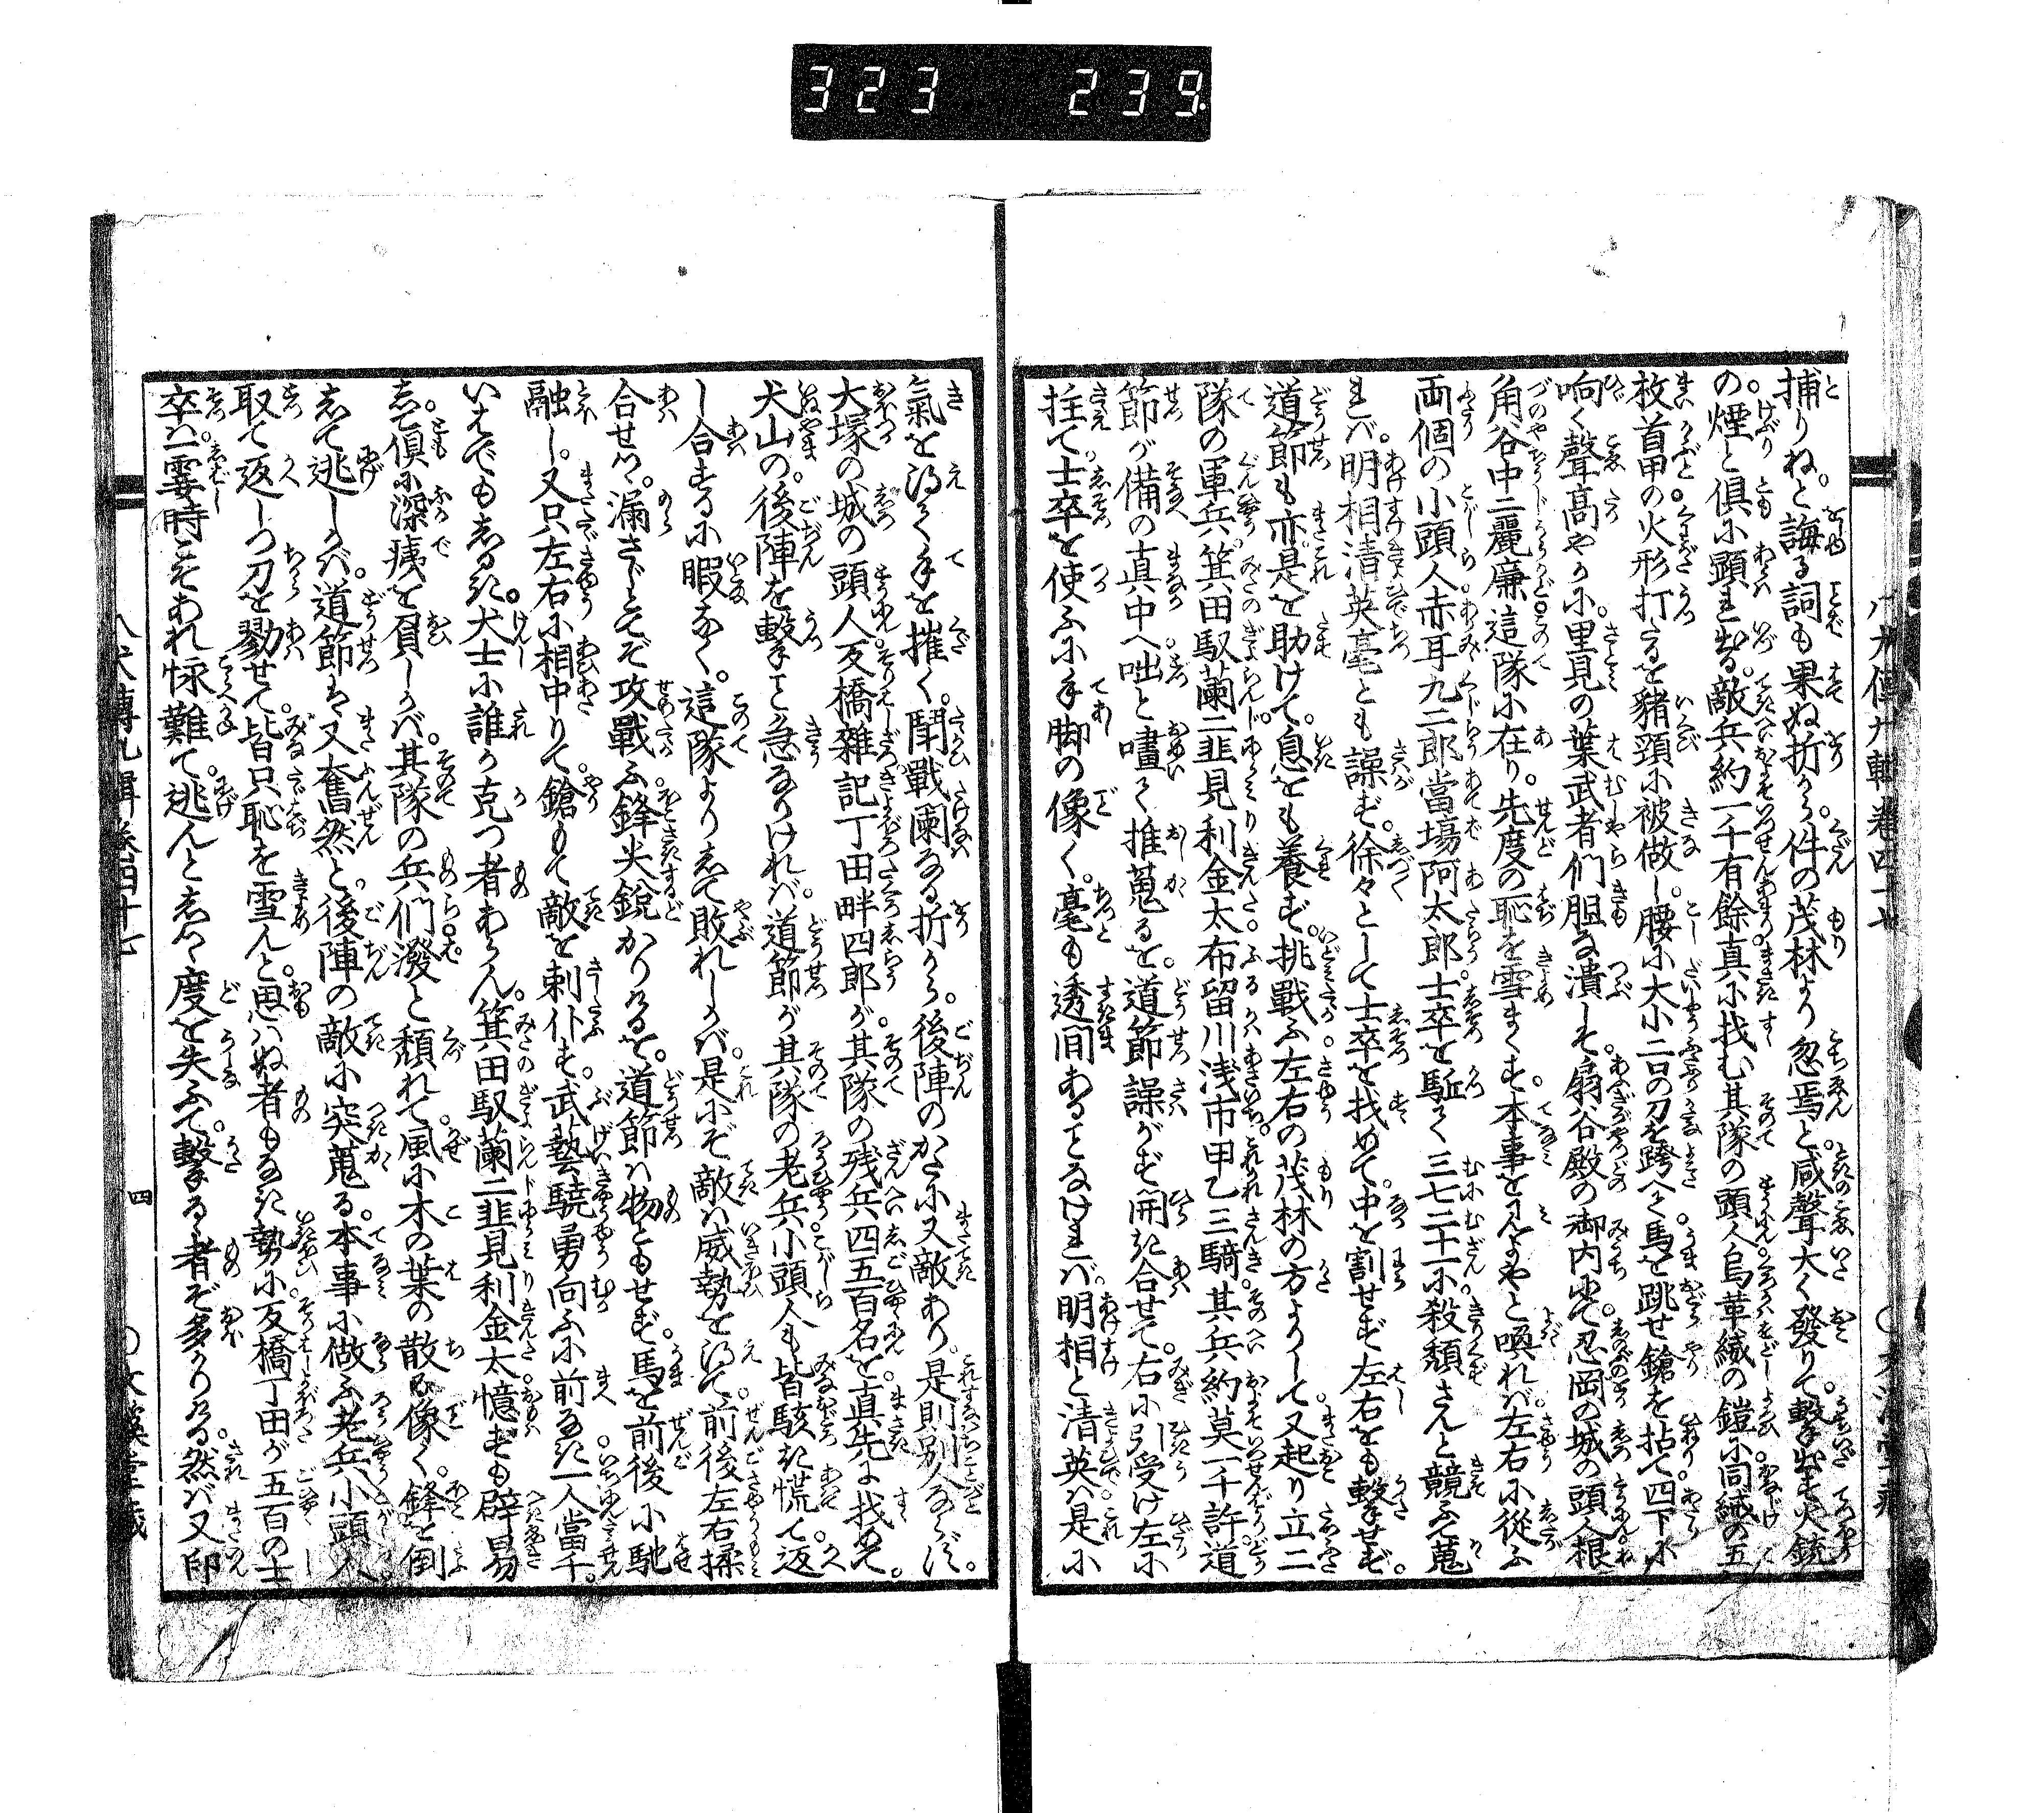 323 239
八犬傳九輯卷四十七
捕りね。と誨る詞も果ぬ折から。件の茂林より忽焉と。咸聲大く發りて。撃出す火銃
の。煙と倶に顕れ出る。敵兵約一千有餘真に找む其隊の頭人烏革縅の鎧に同縅の五
枚首甲の火形打たるを猪頸に被做し腰に大小二口の刀を跨へて馬を跳せ鎗を拈て四下に
响く聲高やかに。里見の葉武者們胆な潰しそ。扇谷殿の御内にて。忍岡の城の頭人根
角谷中二麗廉這隊に在り。先度の恥を雪まくす本事を見よやと喚れば。左右に從ふ
両個の小頭人赤耳九二郎當塲阿太郎。士卒を駈て三七二十一に殺頽さんと競ふて蒐
れば。明相清英毫とも譟ず。徐々として士卒を找めて。中を割せず左右をも撃せず。
道節も亦是を助けて。息をも養ず。挑戰ふ左右の茂林の方よりして又起り立二
隊の軍兵。箕田馭蘭二韮見利金太布留川浅市甲乙三騎。其兵約莫一千許。道
節が備の真中へ咄と嘯て推蒐るを。道節譟がず開き合せて。右に引受け左に
拄て士卒を使ふに手脚の像く。毫も透間あることなければ。明相と清英は是に
氣を得て手を摧く。鬪戰闌なる折から。後陣のかたに又敵あり。是則別人ならず。
大塚の城の頭人反橋雜記丁田畔四郎が。其隊の残兵四五百名を。真先に找めて。
犬山の。後陣を撃こと急なりければ。道節が其隊の老兵小頭人も皆駭き慌て。返
し合するに暇なく。這隊よりして敗れしかば。是にぞ敵は威勢を得て。前後左右揉
合せつ。漏さじとぞ攻戰ふ。鋒尖銳かりけるを。道節は物ともせず。馬を前後に馳
融し。又只左右に相中りて。鎗もて敵を刺仆す。武藝驍勇向ふに前なき一人當千。
いへでもしるき。犬士に誰か克つ者あらん。箕田馭蘭二韮見利金太憶ずも辟易
して。倶に深痍を負しかば。其隊の兵們潑と頽れて。風に木の葉の散る像く。鋒を倒
して逃しかば。道節は又奮然と。後陣の敵に突蒐る。本事に做ふ老兵小頭人
取て返しつ刀を勠せて。皆只恥を雪んと。思はぬ者もなき勢に。反橋丁田が五百の士
卒は。霎時こそあれ怺難て。逃んとしつゝ度を失ふて。撃るゝ者ぞ多かりける。然ば又印
八犬傳九輯卷四十七
四